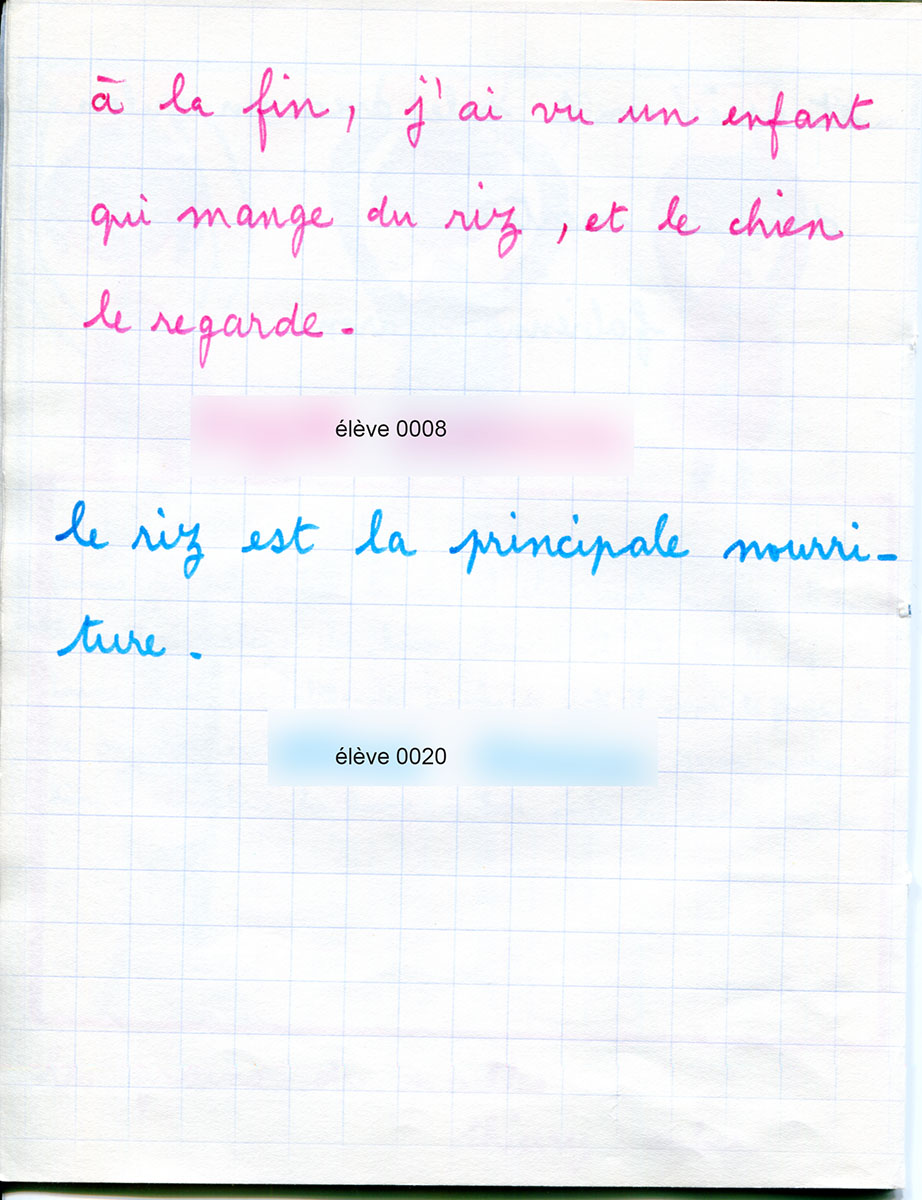 à la fin, j'ai vu un enfant
qui mange du riz, et le chien
le regarde.
élève 0008
le riz est la principale nourri-
ture.
élève 0020